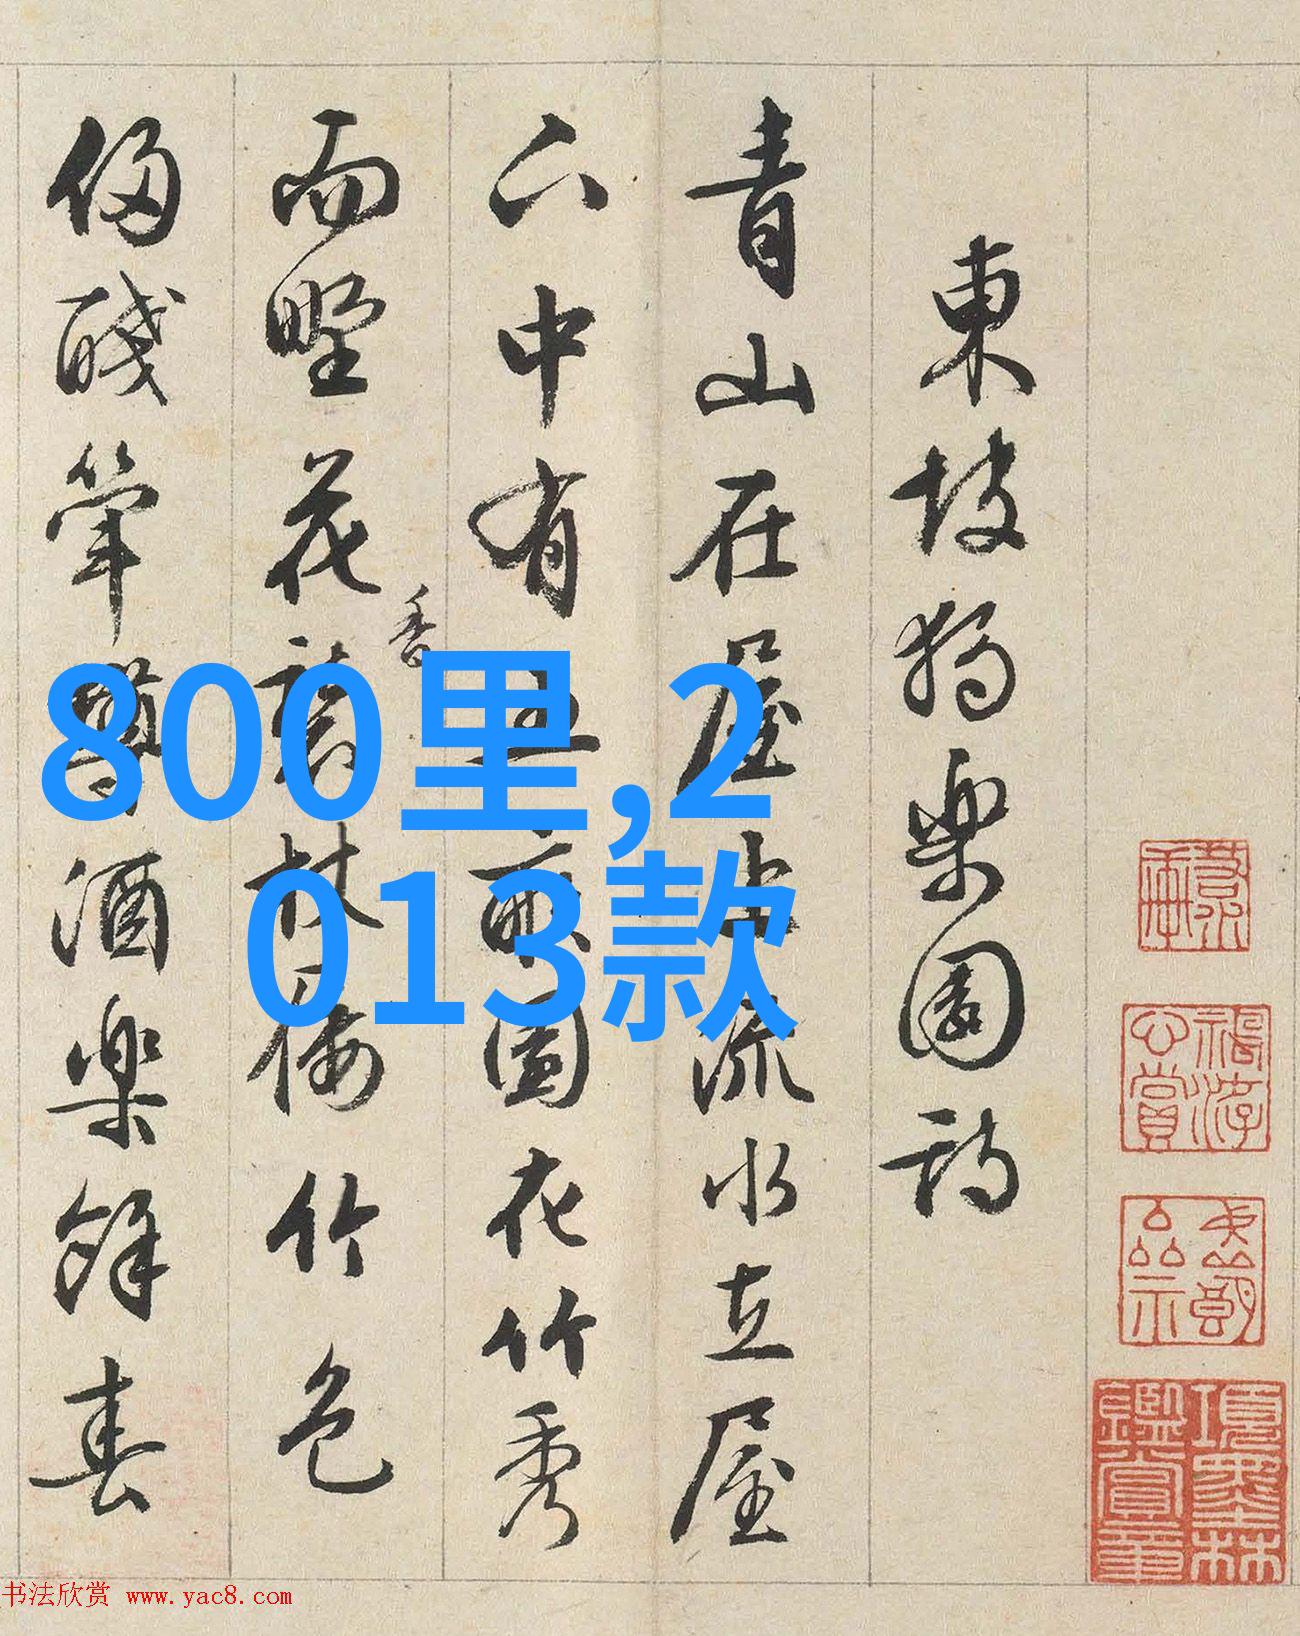 東坡獨樂園詩
青山在屋上流水在屋
下中有五畝園花竹秀
而野花香襲杖屨竹色
侵醆斝樽酒樂餘春
香
800里,2
013款
項墨林鑑賞章
书法欣赏 www.yac8.com